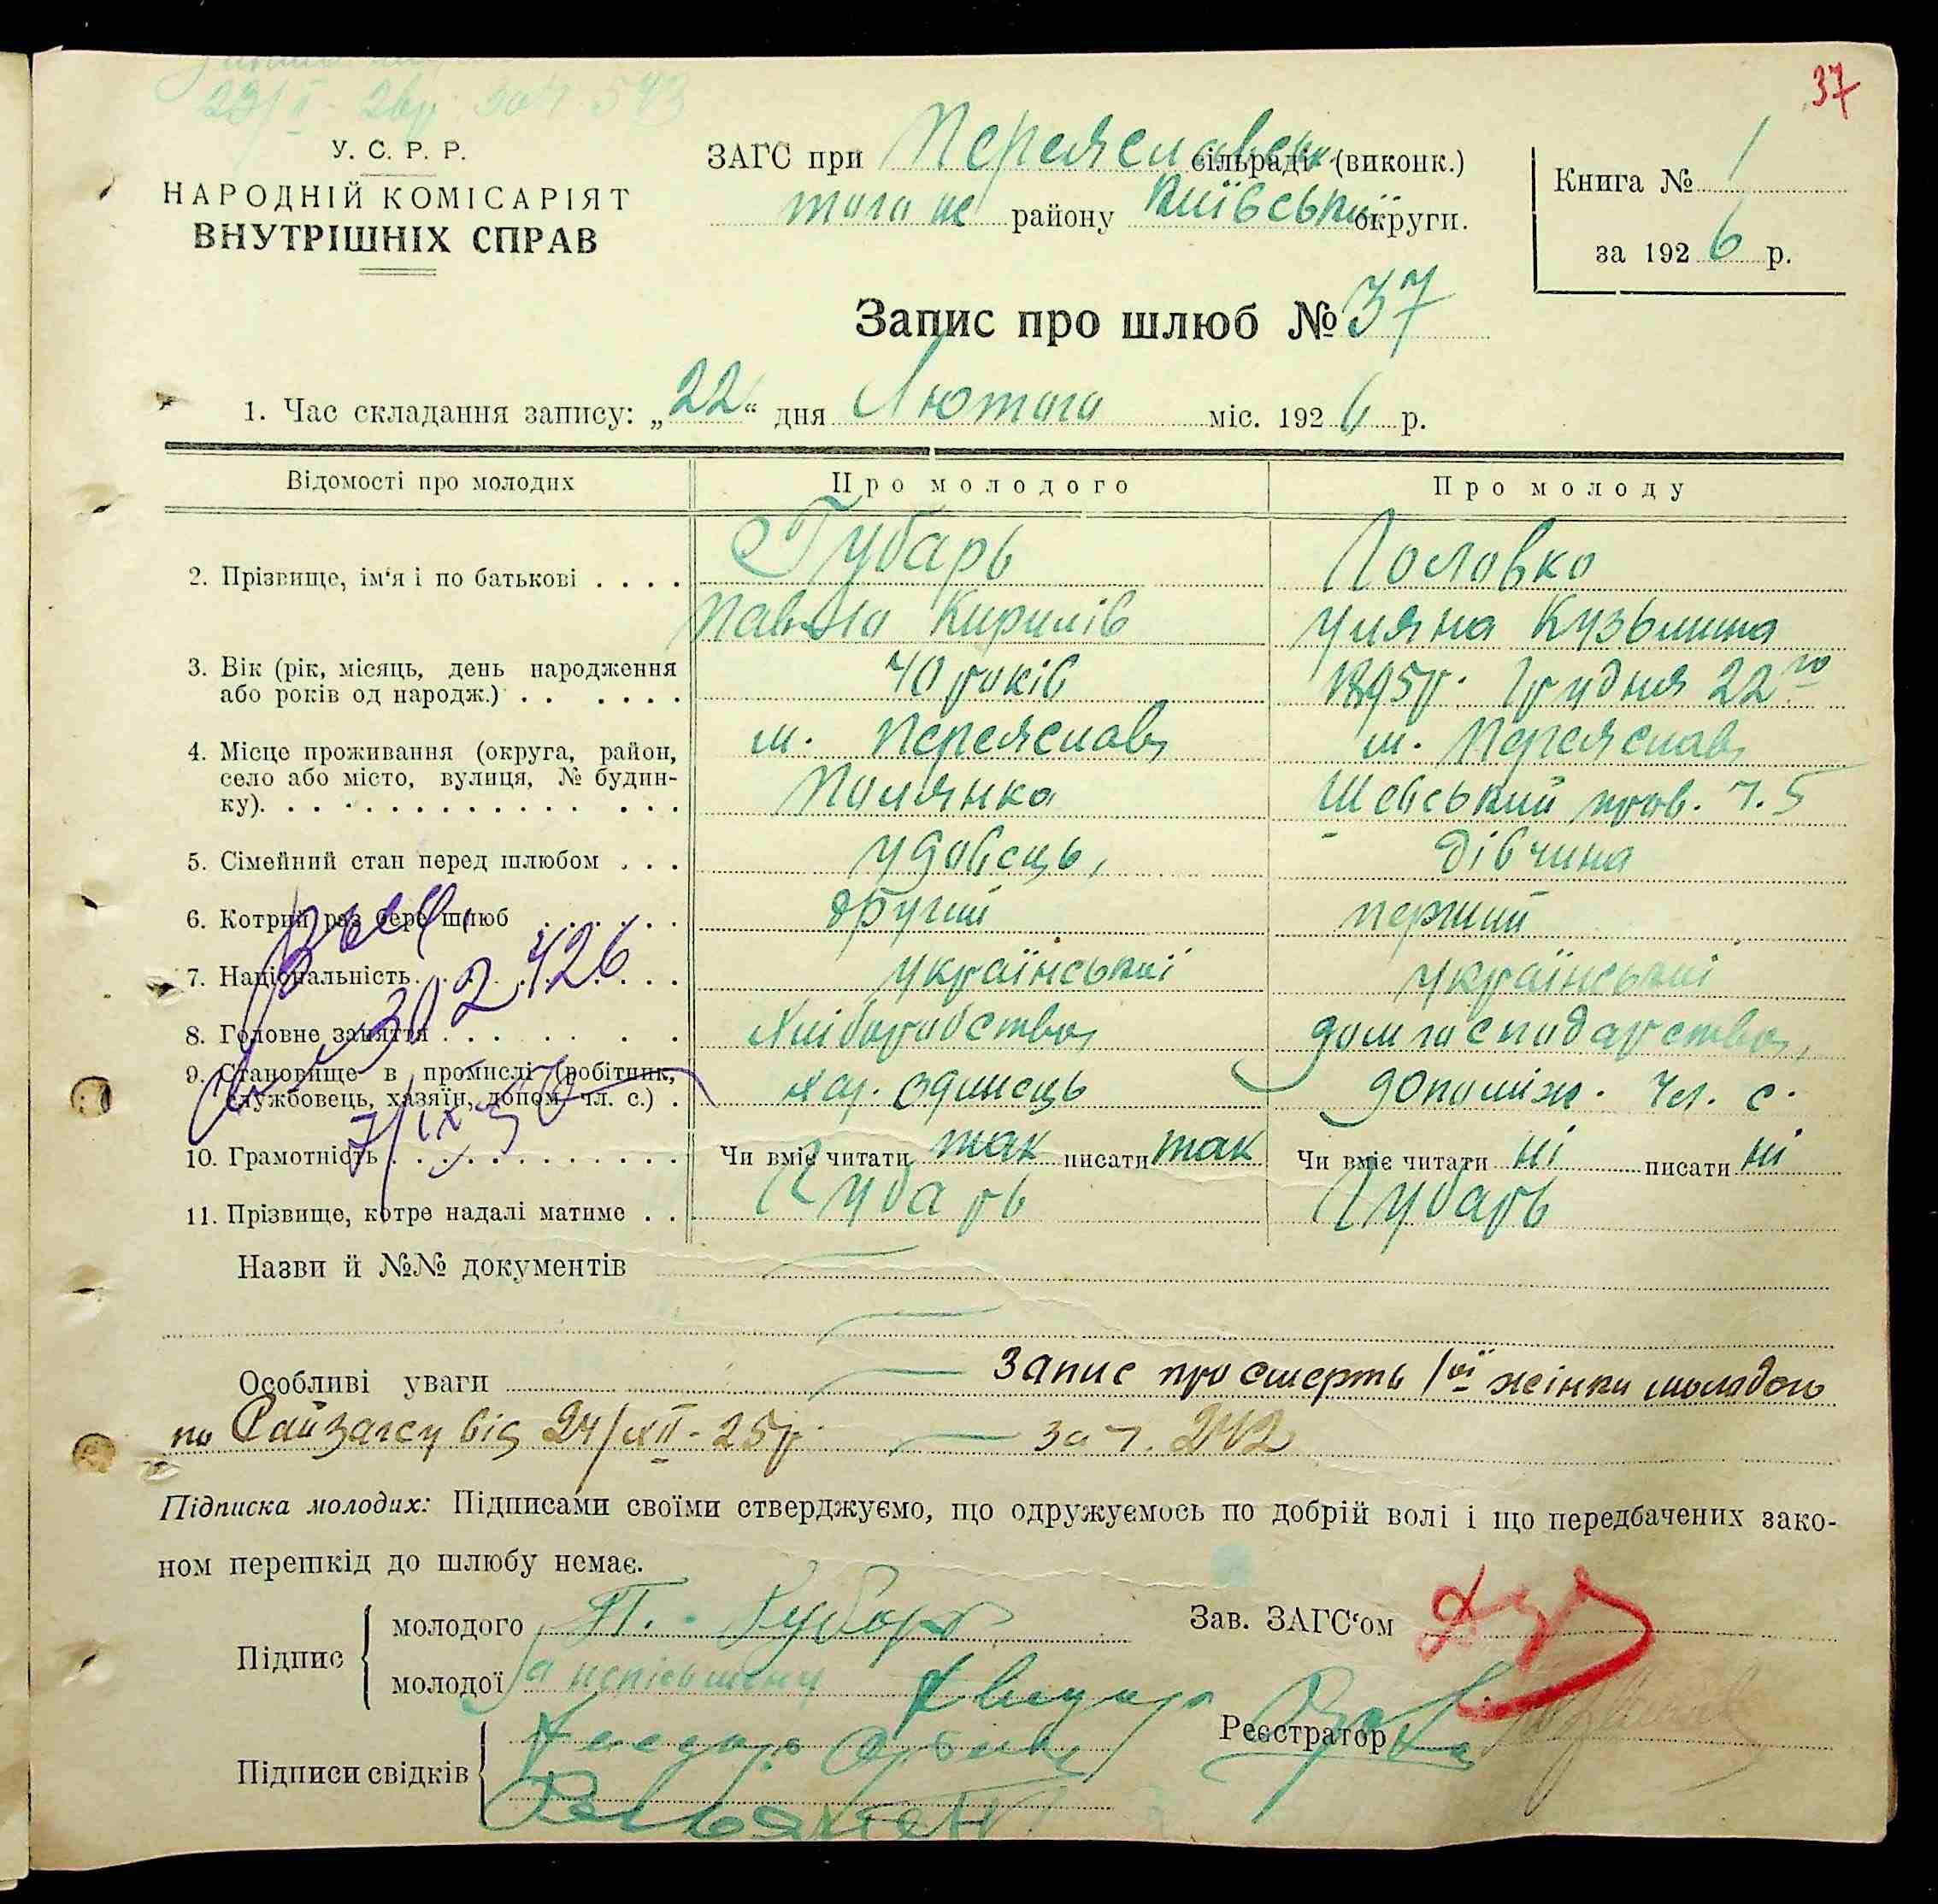 37
23/II - 26р. за ч. 543
У. С. Р. Р.
НАРОДНІЙ КОМІСАРІЯТ
ВНУТРІШНІХ СПРАВ
ЗАГС при Переяславськ. сільраді (виконк.)
того ж району Київської округи.
Книга № 1
за 1926 р.
Запис про шлюб № 37
1. Час складання запису: „22“ дня Лютого міс. 1926 р.
Відомості про молодих Про молодого Про молоду
2. Прізвище, ім‘я і по батькові . . . . Губарь Головко
Павло Кирилів Уляна Кузьминна
3. Вік (рік, місяць, день народження або років од народж.) . . . . . . 40 років 1895р. Грудня 22го
4. Місце проживання (округа, район, село або місто, вулиця, № будинку). . . . м. Переяслав м. Переяслав
Підлянка Шевський пров. ч. 5
5. Сімейний стан перед шлюбом . . . удовець, дівчина
6. Котрий раз бере шлюб . . . . . . другий перший
7. Національність. . . . . . . . української української
8. Головне заняття . . . . . . . Хліборобство домгосподарство,
9. Становище в промислі (робітник, службовець, хазяїн, допом. чл. с.) . хаз. одинець допоміж. чл. с.
10. Грамотність . . . . . . . . . . . Чи вміє читати так писати так Чи вміє читати ні писати ні
11. Прізвище, котре надалі матиме . . Губарь Губарь
302426
7/IX 50
Назви й №№ документів
Особливі уваги Запис про смерть 1ої жінки молодого
по Райзагсу від 24/XII - 25р. за ч. 242
Підписка молодих: Підписами своїми стверджуємо, що одружуємось по добрій волі і що передбачених зако-
ном перешкід до шлюбу немає.
Підпис
молодого П. Губарь
молодої За неписьменну
Зав. ЗАГС‘ом
Реєстратор
Підписи свідків